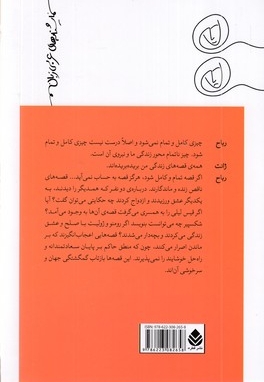 رباح چیزی کامل و تمام نمی‌شود و اصلاً درست نیست، چیزی کامل و تمام
شود. چیز ناتمام محور زندگی ما و نیروی آن است.
ژانت همه‌ی قصه‌های من بریده‌بریده‌اند.
رباح اگر قصه تمام و کامل شود، هرگز قصه به حساب نمی‌آید... قصه‌های
ناقص زنده و ماندگارند. درباره‌ی دو نفر که همدیگر را دیدند، به
یکدیگر عشق ورزیدند و ازدواج کردند چه حکایتی می‌توان گفت؟ آیا
اگر قیس لیلی را به همسری می‌گرفت قصه‌ی آن‌ها به وجود می‌آمد؟
شکسپیر چه می‌توانست بنویسد، اگر رومئو و ژولیت با صلح و عشق
زندگی می‌کردند و بچه‌دار می‌شدند؟ قصه‌هایی اعجاب‌انگیزند که بر
ماندن اصرار می‌کنند، چون که منطق حاکم بر پایان سعادتمندانه و
راه‌حل خوشایند را نمی‌پذیرند. این قصه‌ها بازتاب گمگشتگی جهان و
سرخوشی آن‌اند.
ISBN: 978-622-308-265-8
9786223082658
نشر قطره